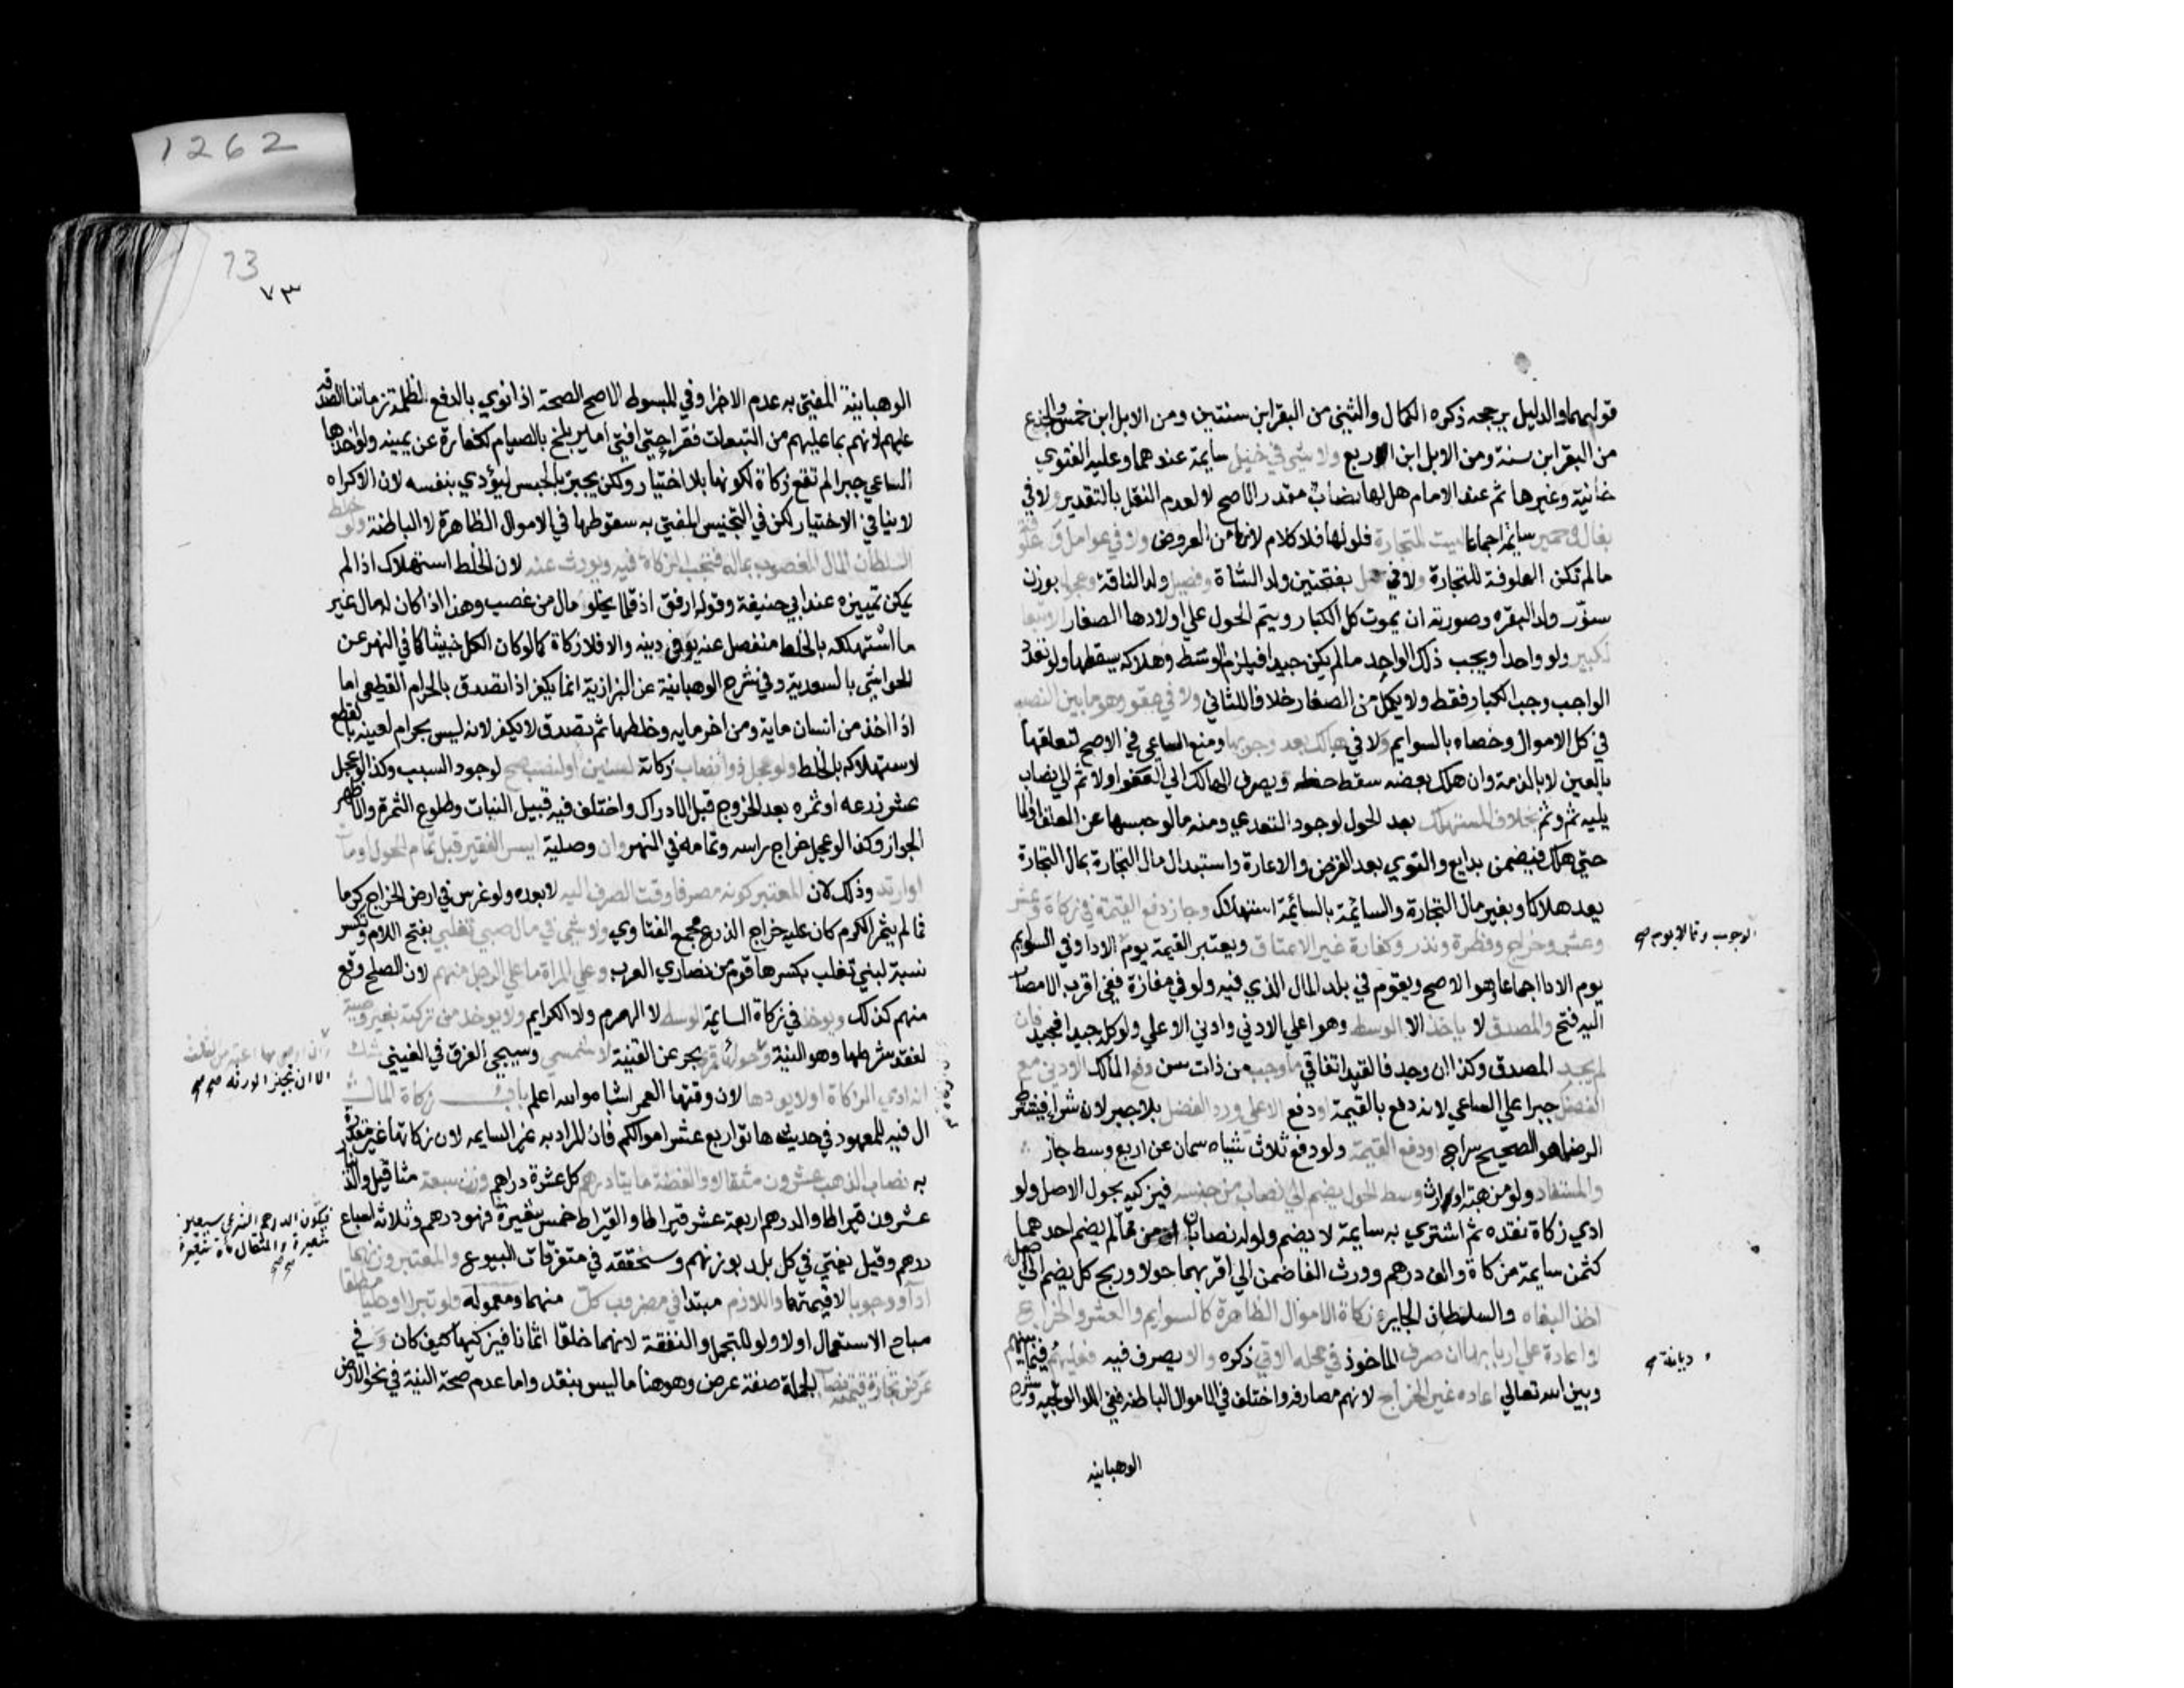 قولهما والدليل يرجحه ذكره الكمال والثني من البقر ابن سنتين ومن الابل ابن خمس والجذع
من البقر ابن سنة ومن الابل ابن اربع ولا شي في خيل سايمة عندهما وعليه الفتوي
خانية وغيرها ثم عند الامام هل لها نصاب مقدر الاصح لا لعدم النقل بالتقدير ولا في
بغال وحمير سايمة اجماعا ليست للتجارة فلو لها فلا كلام لانها من العروض ولا في عوامل وعلوفة
ما لم تكن العلوفة للتجارة ولا في حمل بفتحتين ولد الشاة وفصيل ولد الناقة وعجول بوزن
سنور ولد البقره وصورته ان يموت كل الكبار ويتم الحول علي اولادها الصغار الا تبعا
لكبير ولو واحدا ويجب ذلك الواحد ما لم يكن جيدا فيلزم الوسط وهلاكه يسقطها ولو تعدد
الواجب وجب الكبار فقط ولا يكمل من الصغار خلافا للثاني ولا في عفو وهو ما بين النصب
في كل الاموال وخصاه بالسوايم ولا في هالك بعد وجوبها ومنع الساعي في الاصح لتعلقها
بالعين لا بالذمة وان هلك بعضه سقط حظه ويصرف الهالك الي العفو اولا ثم الي نصاب
يليه ثم وثم بخلاف المستهلك بعد الحول لوجود التعدي ومنه ما لو حبسها عن العلف او الما
حتي هلكت فيضمن بدايع والتوي بعد القرض والاعارة واستبدال مال التجارة بمال التجارة
يعد هلاكا وبغير مال التجارة والسائمة بالسائمة استهلاك وجاز دفع القيمة في زكاة وعشر
وعشر وخراج وفطرة ونذر وكفارة غير الاعتاق ويعتبر القيمة يوم الادا وفي السوايم
الوجوب وقالا يوم صح
يوم الادا اجماعا وهو الاصح ويقوم في بلد المال الذي فيه ولو في مفازة ففي اقرب الامصار
اليه فتح والمصدق لا ياخذ الا الوسط وهو اعلي الادني وادني الاعلي ولو كله جيدا فجيد فان
لم يجد المصدق وكذا ان وجد فالقيد اتفاقي ما وجب من ذات سن دفع المالك الادني مع
الفضل جبرا علي الساعي لانه دفع بالقيمة او دفع الاعلي ورد الفضل بلا جبر لان شرا فيشترط
الرضا هو الصحيح سراج او دفع القيمة ولو دفع ثلاث شياه سمان عن اربع وسط جاز
والمستفاد ولو من هبة او ارث وسط الحول يضم الي نصاب من جنسه فيزكيه بحول الاصل ولو
ادي زكاة نقده ثم اشتري به سايمة لا يضم ولو له نصابان من مما لم يضم احدهما
كثمن سايمة مزكاة والف درهم وورث الفا ضمت الي اقربهما حولا وربح كل يضم الي اصله
اخذ البغاه والسلطان الجاير زكاة الاموال الظاهرة كالسوايم والعشر والخراج
لا اعادة علي اربابها ان صرف الماخوذ في محله الاتي ذكره والا يصرف فيه فعليهم فيما بينهم
ديانة
وبين الله تعالي اعاده غير الخراج لانهم مصارفه واختلف في الاموال الباطنه ففي الولوالجيه وشرح
الوهبانيه
1262
73
٧٣
الوهبانية المفتي به عدم الاجزا وفي المبسوط الاصح الصحة اذا نوي بالدفع لظلمة زماننا الصدقة
عليهم لانهم بما عليهم من التبعات فقرا حتي افتي امير بلخ بالصيام لكفارة عن يمينه ولو اخذها
الساعي جبرا لم تقع زكاة لكونها بلا اختيار ولكن يجبر بالحبس ليؤدي بنفسه لان الاكراه
لا ينافي الاختيار لكن في التجنيس المفتي به سقوطها في الاموال الظاهرة لا الباطنة ولو خلط
السلطان المال المغصوب بماله فتجب الزكاة فيه ويورث عنه لان الخلط استهلاك اذا لم
يمكن تمييزه عند ابي حنيفة وقوله ارفق اذ قلما يخلو مال من غصب وهذا اذا كان له مال غير
ما استهلكه بالخلط منفصل عنه يوفي دينه والا فلا زكاة كما لو كان الكل خبيثا كما في النهر عن
الحواشي بالسعدية وفي شرح الوهبانية عن البزازية انما يكفر اذا تصدق بالحرام القطعي اما
اذا اخذ من انسان ماية ومن اخر مايه وخلطها ثم تصدق لا يكفر لانه ليس بحرام لعينه بالقطع
لاستهلاكه بالخلط ولو عجل ذو نصاب زكاته لسنين او لنصب صح لوجود السبب وكذا لو عجل
عشر زرعه او ثمره بعد الخروج قبل الادراك واختلف فيه قبيل النبات وطلوع الثمرة والاظهر
الجواز وكذا لو عجل خراج راسه وتمامه في النهر وان وصلية ايسر الفقير قبل تمام الحول او مات
او ارتد وذلك لان المعتبر كونه مصرفا وقت الصرف اليه لا بعده ولو غرس في ارض الخراج كرما
فما لم يثمر الكرم كان عليه خراج الزرع مجمع الفتاوي ولا شي في مال صبي تغلبي بفتح اللام وتكسر
نسبة لبني تغلب بكسرها قوم من نصاري العرب وعلي المراة ما علي الرجل منهم لان الصلح وقع
منهم كذلك ويوخذ في زكاة السايمة الوسط لا الهرم ولا الكرايم ولا يوخذ من تركته بغير وصية
لفقد شرطها وهو النية وحولها قمري بحر عن القنية لا شمسي وسيجي الفرق في العنين شك
الا ان تجيز الورثه صح
انه ادي الزكاة اولا يوديها لان وقتها العمر اشباه والله اعلم باب زكاة المال
ال فيه للمعهود في حديث هاتوا ربع عشر اموالكم فان المراد به غير السايمه لان زكاتها غير مقدرة
به نصاب الذهب عشرون مثقالا والفضة مايتا درهم كل عشرة دراهم وزن سبعة مثاقيل والدينار
عشرون قيراطا والدرهم اربعة عشر قيراطا والقيراط خمس شعيرة فهو درهم وثلاثة اسباع
فيكون الدرهم الشرعي سبعين
شعيرة والمثقال مأة شعيرة
صح
درهم وقيل يفتي في كل بلد بوزنهم وسنحققه في متفرقات البيوع والمعتبر وزنهما
ادآ ووجوبا لا قيمتهما واللازم مبتدا في مضروب كل منهما ومعموله ولو تبرا او حليا مطلقا
مباح الاستعمال اولا ولو للتجمل والنفقة لانهما خلقا اثمانا فيزكيهما كيف كان وفي
عرض تجارة قيمته نصاب الجملة صفة عرض وهو هنا ما ليس بنقد واما عدم صحة النية في نحو الارض